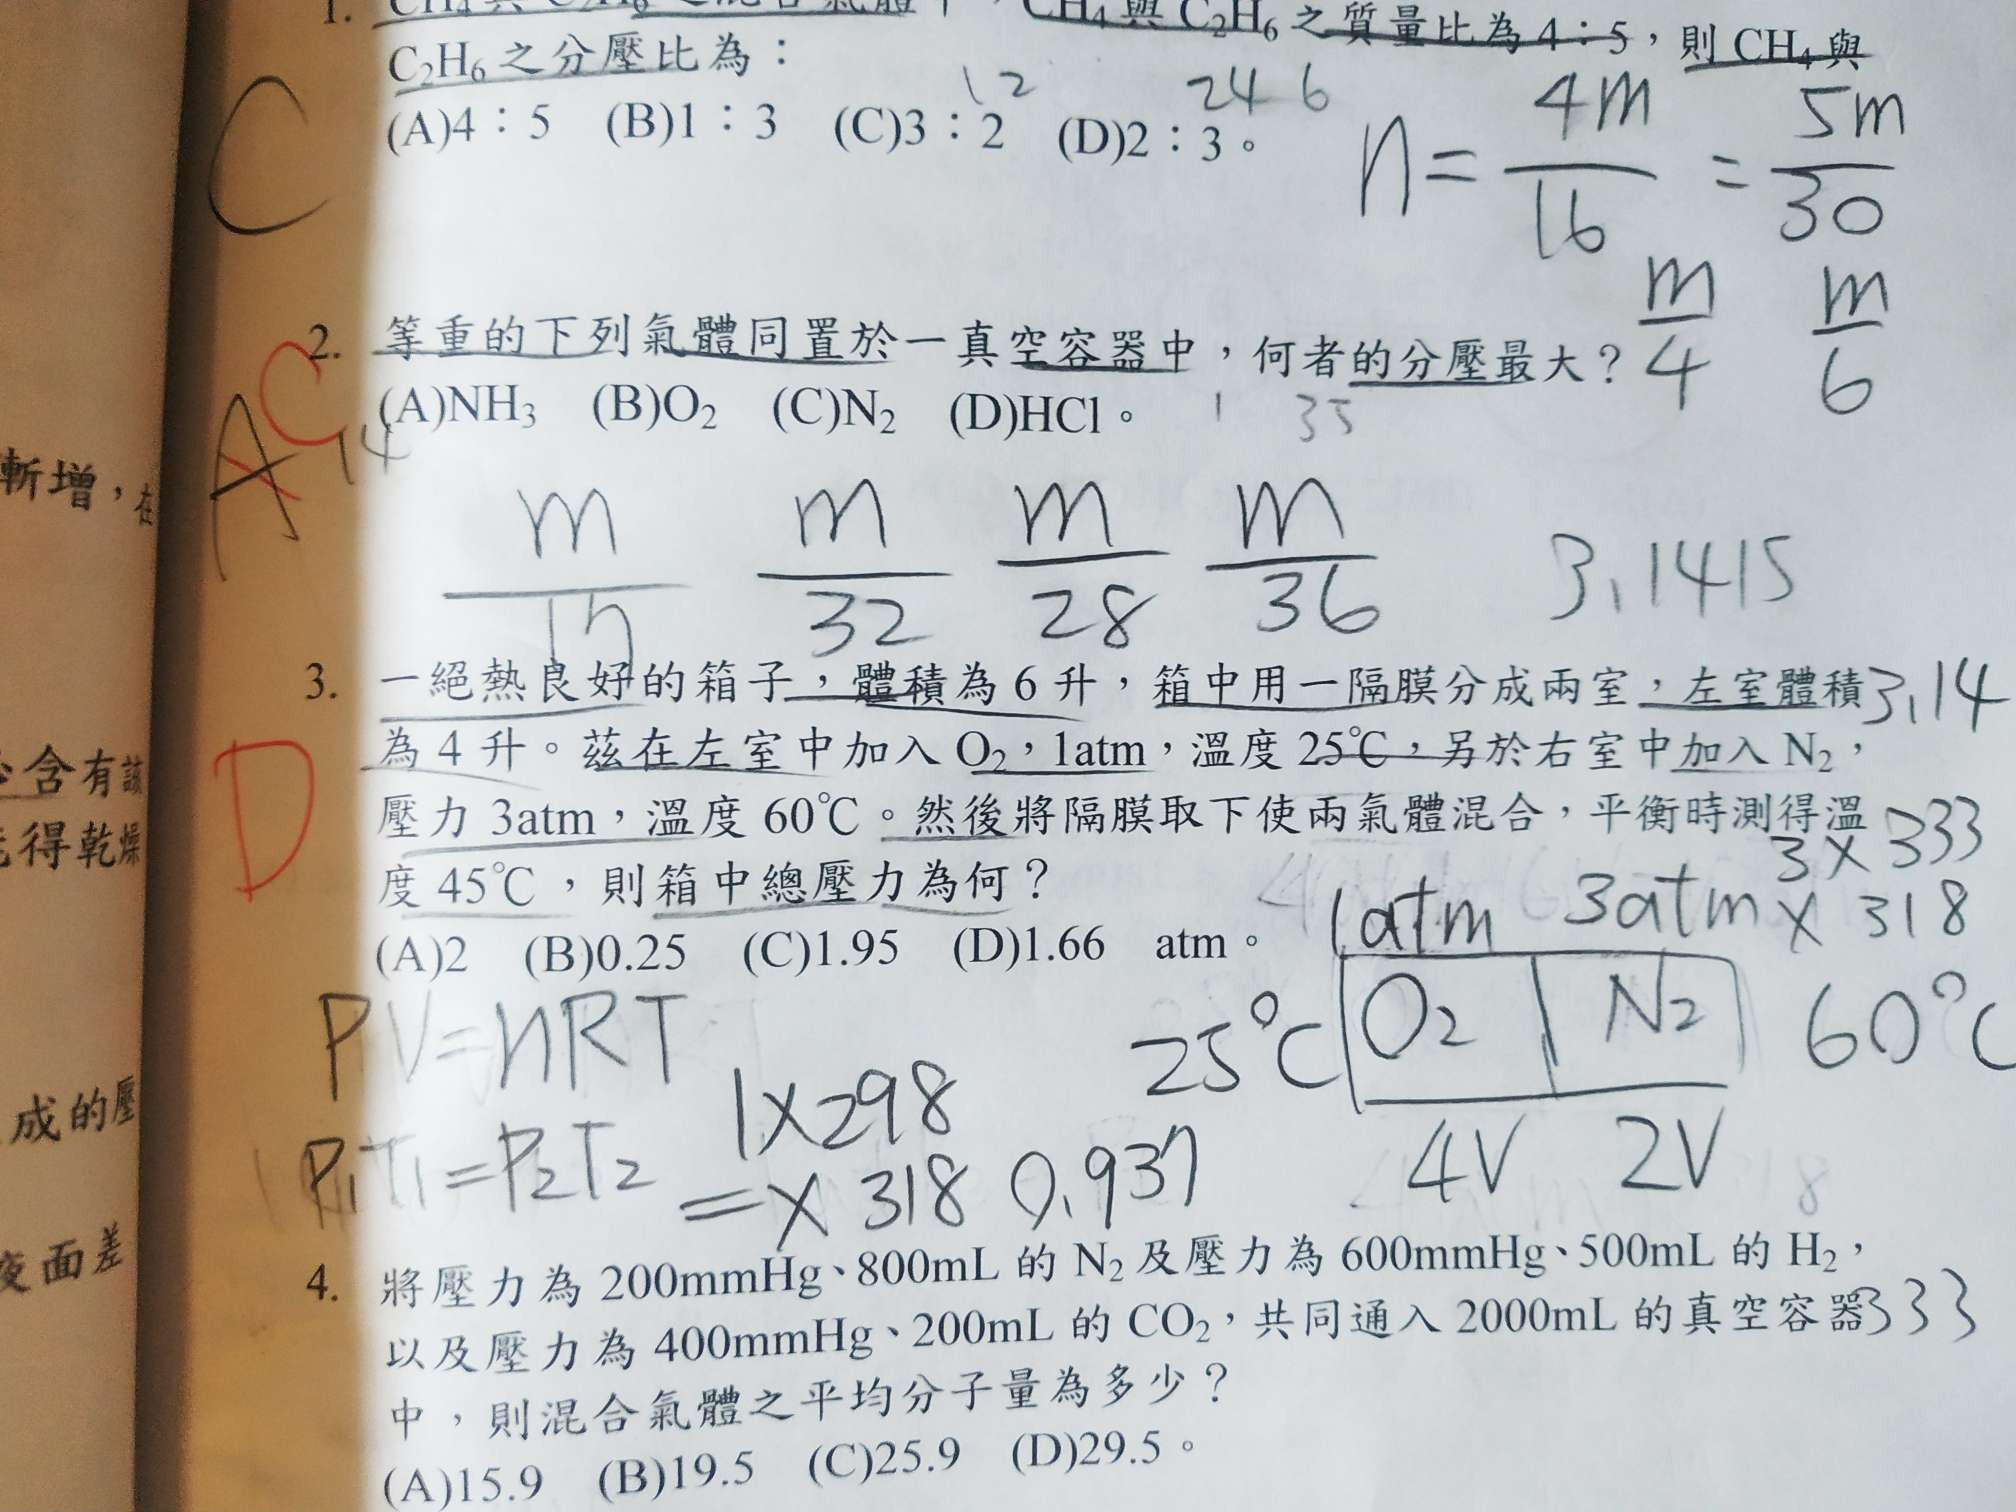 1. CH4與 C2H6 之混合氣體中,CH4與 C2H6 之質量比為 4:5,則 CH4與
C2H6 之分壓比為:
12 24 6
(A)4:5 (B)1:3 (C)3:2 (D)2:3。
C
n = 4m/16 = 5m/30
m/4 m/6
2. 等重的下列氣體同置於一真空容器中,何者的分壓最大?
(A)NH3 (B)O2 (C)N2 (D)HCl。
1 35
A C 14
m/17 m/32 m/28 m/36
3.1415
3. 一絕熱良好的箱子,體積為 6 升,箱中用一隔膜分成兩室,左室體積
3.14
為 4 升。茲在左室中加入 O2,1atm,溫度 25℃,另於右室中加入 N2,
壓力 3atm,溫度 60℃。然後將隔膜取下使兩氣體混合,平衡時測得溫
度 45℃,則箱中總壓力為何?
D
3×333
×318
(A)2 (B)0.25 (C)1.95 (D)1.66 atm。
1atm 3atm
25°C O2 N2 60°C
4V 2V
PV=nRT
P1T1=P2T2
1×298
=×318 0.937
4. 將壓力為 200mmHg、800mL 的 N2 及壓力為 600mmHg、500mL 的 H2,
以及壓力為 400mmHg、200mL 的 CO2,共同通入 2000mL 的真空容器
333
中,則混合氣體之平均分子量為多少?
(A)15.9 (B)19.5 (C)25.9 (D)29.5。
漸增,在
含有該
得乾燥
成的壓
面差